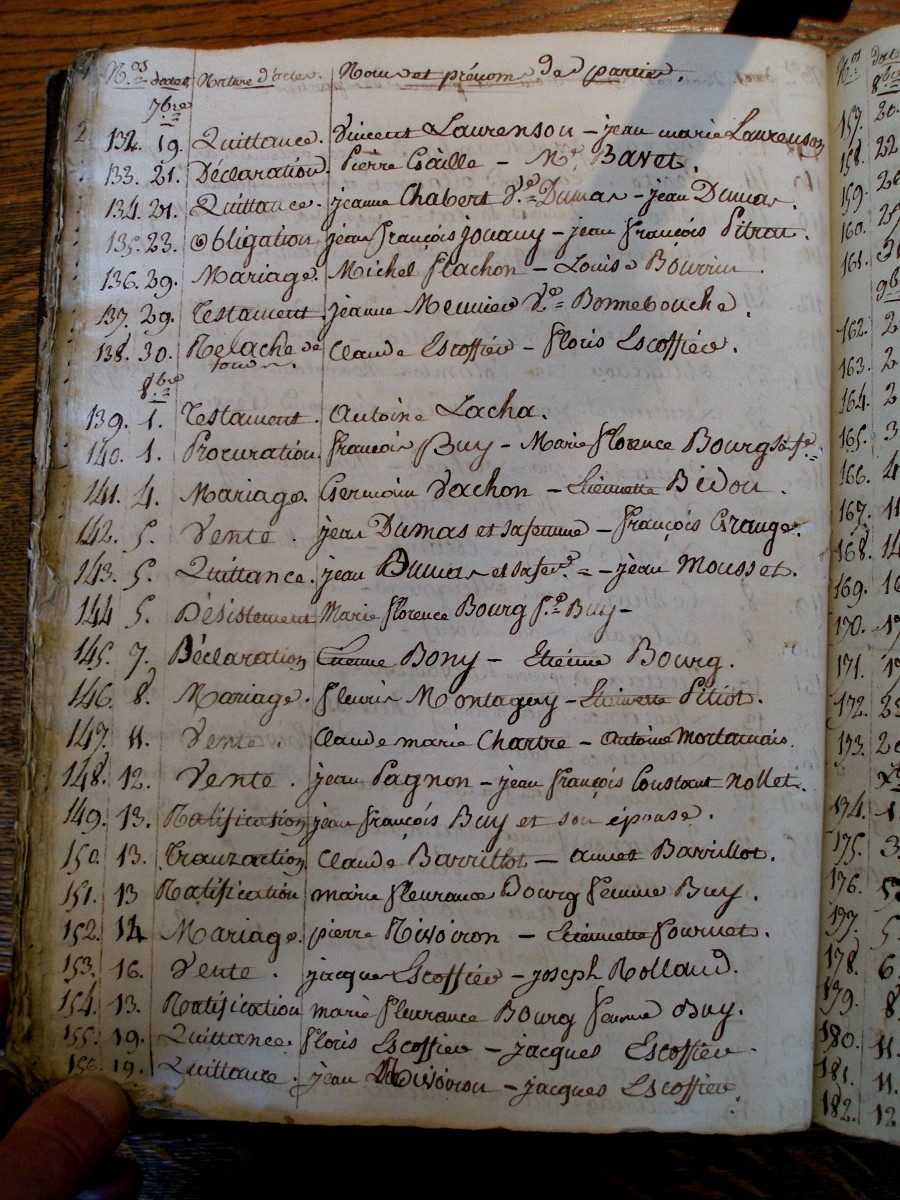 N.os dates Nature d'actes. Noms et prénoms des parties.
7bre
132. 19. Quittance. Vincent Laurenson - jean marie Laurenson
133. 21. Déclaration. Pierre - Mr. Bavet.
134. 21. Quittance. jeanne Chabert Ve. Dumas - jean Dumas.
135. 23. Obligation jean françois jouany - jean françois Pitrat.
136. 29. Mariage. Michel flachon - Louise Bourrin
137. 29. Testament. jeanne Meunier Ve. Bonnebouche.
138. 30. Relache de Claude Escoffier - floris Escoffier.
8bre
139. 1. Testament. Antoine Lacha.
140. 1. Procuration. françois Buy - Marie florence Bourg sa fe.
141. 4. Mariage. Germain Vachon - Etiennette Bidon.
142. 5. Vente. jean Dumas et sa femme - françois Grange.
143. 5. Quittance. jean Dumas et sa fe. - jean Mousset.
144 5. Désistement Marie florence Bourg fe. Buy -
145. 7. Déclaration Etienne Bony - Etienne Bourg.
146. 8. Mariage. fleuris Montagny - Etiennette Pitiot.
147. 11. Vente. Claude marie Chartre - Antoine Mortamais.
148. 12. Vente. jean Pagnon - jean françois Constant Nollet.
149. 13. Ratification jean françois Buy et son épouse.
150. 13. Tranzaction Claude Barrillot - annet Barrillot.
151. 13 Ratification marie fleurance Bourg femme Buy.
152. 14 Mariage. pierre Rivoiron - Etiennette fournet.
153. 16. Vente. jacques Escoffier - joseph Rolland.
154. 13. Ratification marie fleurance Bourg femme Buy.
155. 19. Quittance. floris Escoffier - jacques Escoffier.
156. 19. Quittance. jean Rivoiron - jacques Escoffier.
N.os
8bre
157. 20.
158. 22
159.
160.
161.
9bre
162. 2
163. 2
164. 2
165. 3
166. 4
167. 11
168. 14
169. 16
170. 17
171.
172.
173.
174. 1.
175. 3.
176. 5
177. 5.
178. 6.
179. 8
180. 11.
181. 11.
182. 12